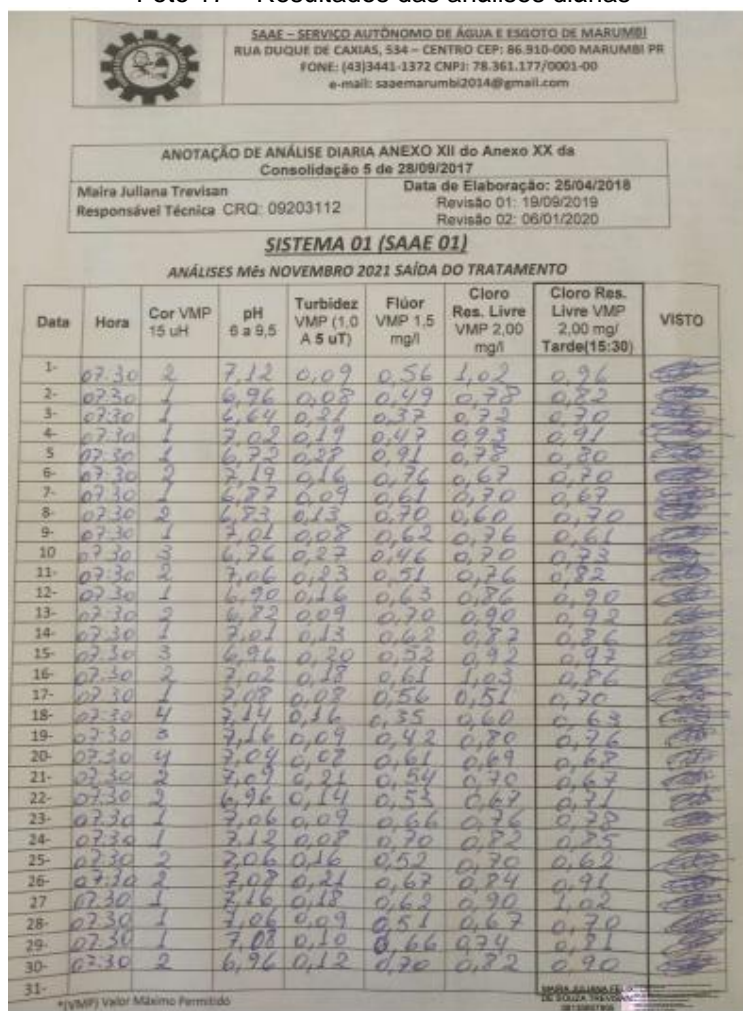 SAAE – SERVIÇO AUTÔNOMO DE ÁGUA E ESGOTO DE MARUMBI
RUA DUQUE DE CAXIAS, 534 – CENTRO CEP: 86.910-000 MARUMBI PR
FONE: (43)3441-1372 CNPJ: 78.361.177/0001-00
e-mail: saaemarumbi2014@gmail.com
ANOTAÇÃO DE ANÁLISE DIARIA ANEXO XII do Anexo XX da
Consolidação 5 de 28/09/2017
Maira Juliana Trevisan
Responsável Técnica CRQ: 09203112
Data de Elaboração: 25/04/2018
Revisão 01: 19/09/2019
Revisão 02: 06/01/2020
SISTEMA 01 (SAAE 01)
ANÁLISES Mês NOVEMBRO 2021 SAÍDA DO TRATAMENTO
Data Hora Cor VMP 15 uH pH 6 a 9,5 Turbidez VMP (1,0 A 5 uT) Flúor VMP 1,5 mg/l Cloro Res. Livre VMP 2,00 mg/l Cloro Res. Livre VMP 2,00 mg/ Tarde(15:30) VISTO
1- 07:30 2 7,12 0,09 0,56 1,02 0,96
2- 07:30 1 6,96 0,08 0,49 0,78 0,82
3- 07:30 1 6,64 0,21 0,37 0,72 0,70
4- 07:30 1 7,02 0,19 0,47 0,93 0,91
5 07:30 1 6,72 0,28 0,91 0,78 0,80
6- 07:30 2 7,19 0,16 0,76 0,67 0,70
7- 07:30 1 6,87 0,09 0,61 0,70 0,67
8- 07:30 2 6,83 0,13 0,70 0,60 0,70
9- 07:30 1 7,01 0,08 0,62 0,76 0,61
10 07:30 3 6,76 0,27 0,46 0,70 0,73
11- 07:30 2 7,06 0,23 0,51 0,76 0,82
12- 07:30 1 6,90 0,16 0,63 0,86 0,90
13- 07:30 2 6,82 0,09 0,70 0,90 0,92
14- 07:30 1 7,01 0,13 0,62 0,87 0,86
15- 07:30 3 6,96 0,20 0,52 0,92 0,97
16- 07:30 2 7,02 0,18 0,61 1,03 0,86
17- 07:30 1 7,08 0,08 0,56 0,51 0,70
18- 07:30 4 7,14 0,16 0,35 0,60 0,63
19- 07:30 3 7,16 0,09 0,42 0,80 0,76
20- 07:30 4 7,04 0,08 0,61 0,69 0,68
21- 07:30 2 7,09 0,21 0,54 0,70 0,67
22- 07:30 2 6,96 0,14 0,53 0,67 0,71
23- 07:30 1 7,06 0,09 0,66 0,76 0,78
24- 07:30 1 7,12 0,08 0,70 0,82 0,85
25- 07:30 2 7,06 0,16 0,52 0,70 0,62
26- 07:30 2 7,08 0,21 0,67 0,84 0,91
27 07:30 1 7,16 0,18 0,62 0,90 1,02
28- 07:30 1 7,06 0,09 0,51 0,67 0,70
29- 07:30 1 7,08 0,10 0,66 0,74 0,81
30- 07:30 2 6,96 0,12 0,70 0,82 0,90
31-
*(VMP) Valor Máximo Permitido